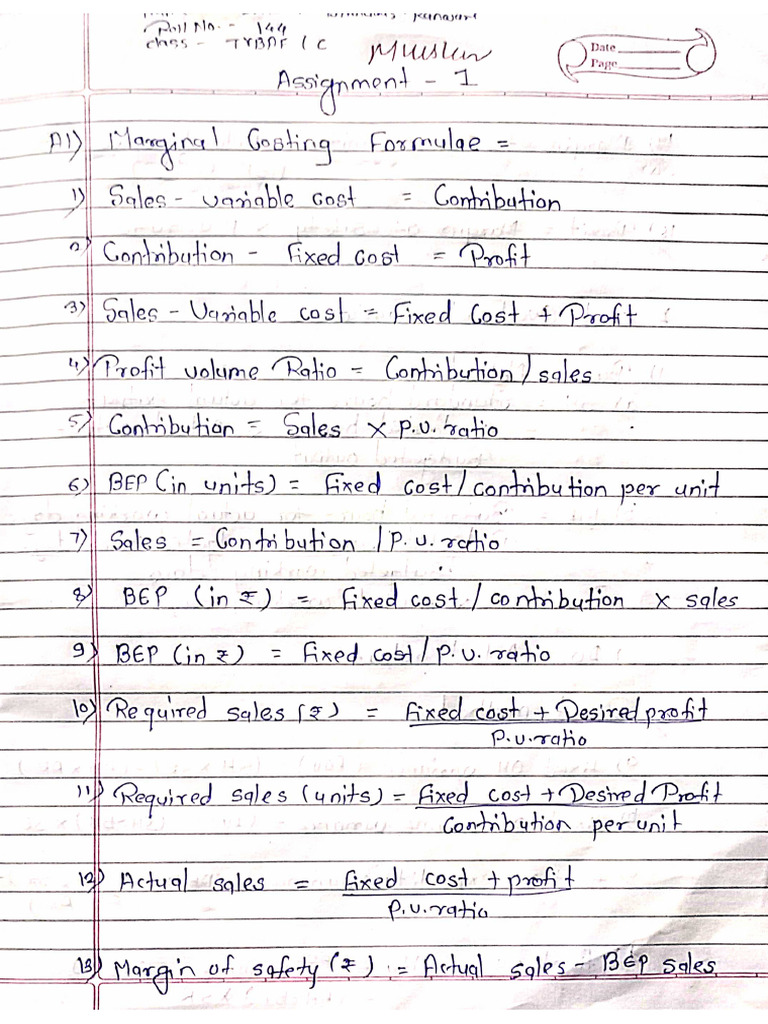 Roll No. - 144
class - TYBAF / C
Date
Page
Assignment - 1
A1) Marginal Costing Formulae =
1) Sales - variable cost = Contribution
2) Contribution - Fixed cost = Profit
3) Sales - Variable cost = Fixed Cost + Profit
4) Profit volume Ratio = Contribution / sales
5) Contribution = Sales x P.V. ratio
6) BEP (in units) = Fixed cost / contribution per unit
7) Sales = Contribution / P.V. ratio
8) BEP (in ₹) = Fixed cost / contribution x sales
9) BEP (in ₹) = Fixed cost / P.V. ratio
10) Required sales (₹) = Fixed cost + Desired profit
P.V. ratio
11) Required sales (units) = Fixed cost + Desired Profit
Contribution per unit
12) Actual sales = Fixed cost + profit
P.V. ratio
13) Margin of safety (₹) = Actual sales - BEP sales